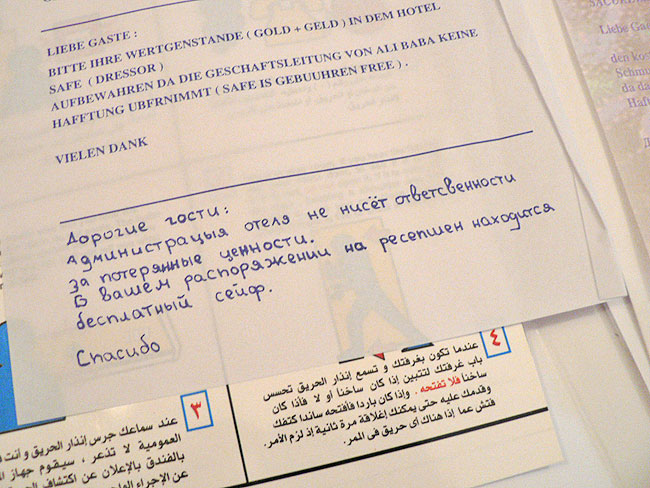 LIEBE GASTE :
BITTE IHRE WERTGENSTANDE ( GOLD + GELD ) IN DEM HOTEL
SAFE ( DRESSOR )
AUFBEWAHREN DA DIE GESCHAFTSLEITUNG VON ALI BABA KEINE
HAFFTUNG UBFRNIMMT ( SAFE IS GEBUUHREN FREE ) .
VIELEN DANK
Дорогие гости:
Администрацыя отеля не нисёт ответсвенности
за потерянные ценности.
В вашем распоряжении на ресепшен находится
бесплатный сейф.
Спасибо
Liebe Ga
den ko
Schmu
da da
Haft
٤
عندما تكون بغرفتك و تسمع إنذار الحريق تحسس
باب غرفتك لتتبين إذا كان ساخنا أو لا فأذا كان
ساخنا فلا تفتحه . وإذا كان باردا فأفتحه ساندا كتفك
وقدمك عليه حتى يمكنك إغلاقة مرة ثانية إذ لزم الأمر.
فتش عما إذا هناك أى حريق فى الممر.
٣
عند سماعك جرس إنذار الحريق و أنت
العمومية لا تذعر ، سيقوم جهاز
بالفندق بالإعلان عن اكتشاف
عن الإجراء